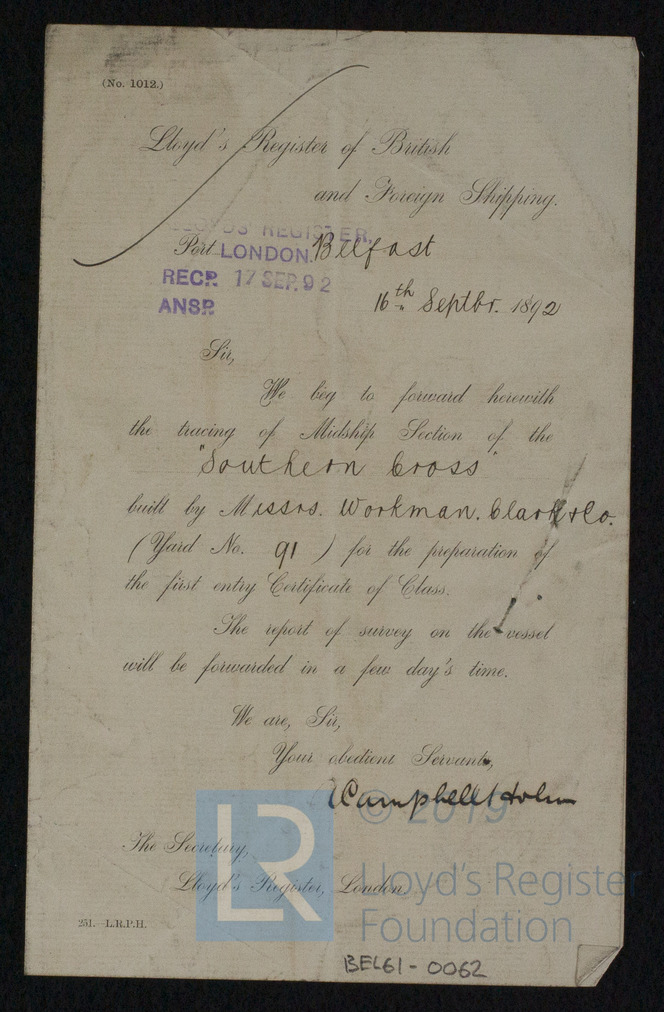 (No. 1012.)
Lloyd's Register of British
and Foreign Shipping.
LLOYD'S REGISTER,
Port LONDON. Belfast
RECD. 17 SEP. 92
16th Septbr. 1892
ANSD.
Sir,
We beg to forward herewith
the tracing of Midship Section of the
"Southern Cross"
built by Messrs. Workman. Clark & Co.
(Yard No. 91) for the preparation of
the first entry Certificate of Class.
The report of survey on the vessel
will be forwarded in a few day's time.
We are, Sir,
Your obedient Servants,
Campbell Holm
© 2019
The Secretary,
LR
Lloyd's Register, London
Lloyd's Register
Foundation
251.—L.R.P.H.
BEL61-0062